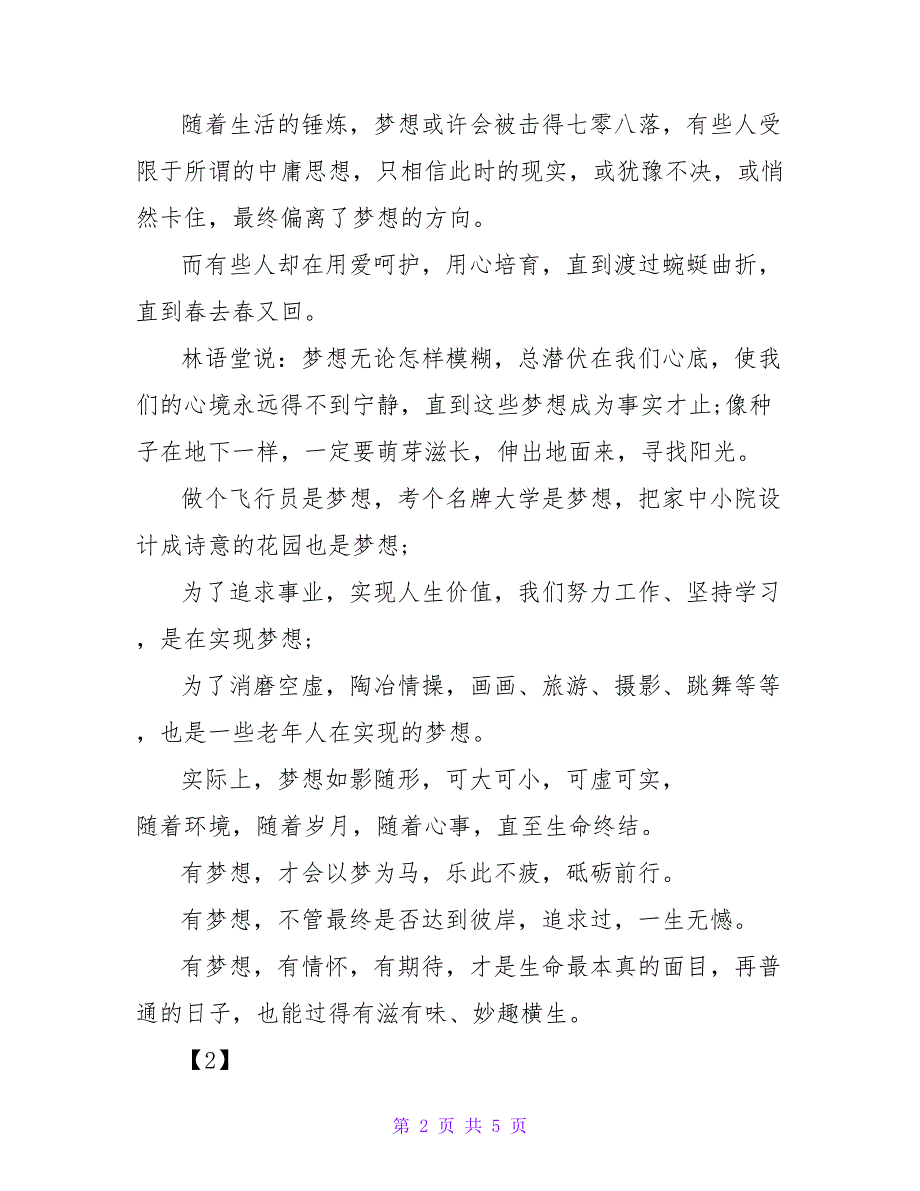 随着生活的锤炼，梦想或许会被击得七零八落，有些人受
限于所谓的中庸思想，只相信此时的现实，或犹豫不决，或悄
然卡住，最终偏离了梦想的方向。
而有些人却在用爱呵护，用心培育，直到渡过蜿蜒曲折，
直到春去春又回。
林语堂说：梦想无论怎样模糊，总潜伏在我们心底，使我
们的心境永远得不到宁静，直到这些梦想成为事实才止;像种
子在地下一样，一定要萌芽滋长，伸出地面来，寻找阳光。
做个飞行员是梦想，考个名牌大学是梦想，把家中小院设
计成诗意的花园也是梦想;
为了追求事业，实现人生价值，我们努力工作、坚持学习
，是在实现梦想;
为了消磨空虚，陶冶情操，画画、旅游、摄影、跳舞等等
，也是一些老年人在实现的梦想。
实际上，梦想如影随形，可大可小，可虚可实，
随着环境，随着岁月，随着心事，直至生命终结。
有梦想，才会以梦为马，乐此不疲，砥砺前行。
有梦想，不管最终是否达到彼岸，追求过，一生无憾。
有梦想，有情怀，有期待，才是生命最本真的面目，再普
通的日子，也能过得有滋有味、妙趣横生。
【2】
第 2 页 共 5 页